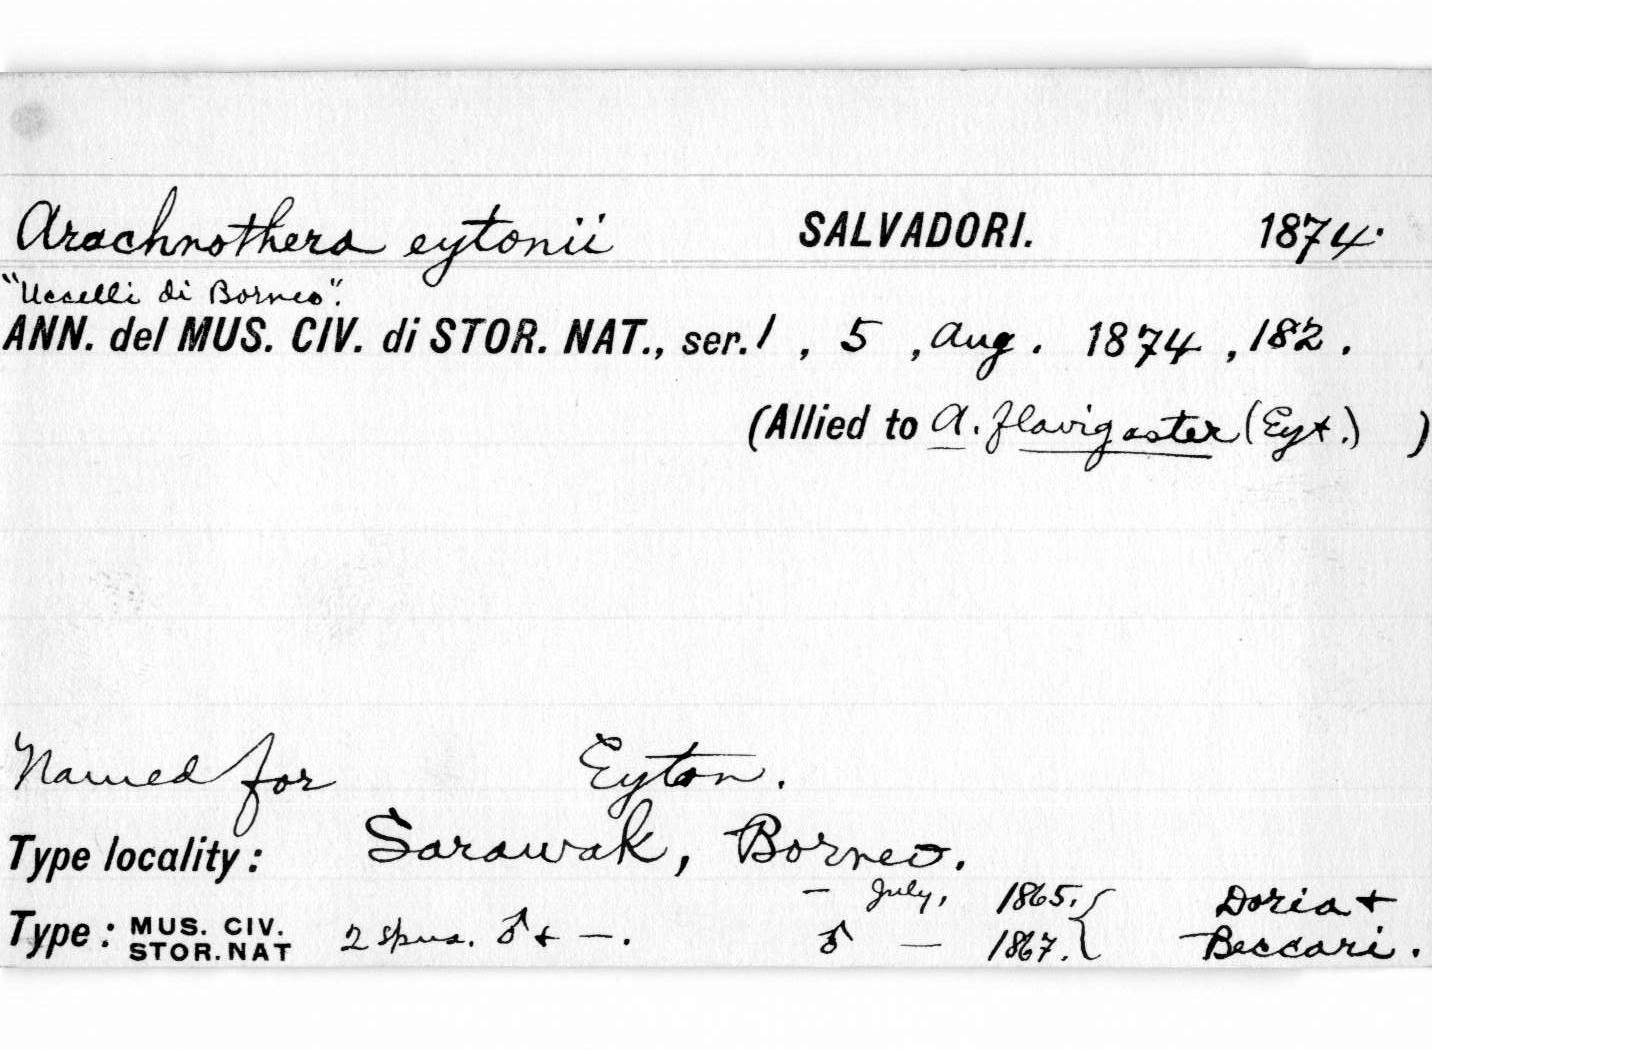 Arachnothera eytonii SALVADORI. 1874.
"Uccelli di Borneo".
ANN. del MUS. CIV. di STOR. NAT., ser. 1, 5, Aug. 1874, 182.
(Allied to A. flavigaster (Eyt.) )
Named for Eyton.
Type locality: Sarawak, Borneo.
– July, 1865. { Doria +
Type: MUS. CIV. STOR. NAT 2 spms. ♂ + –. ♂ — 1867. Beccari.